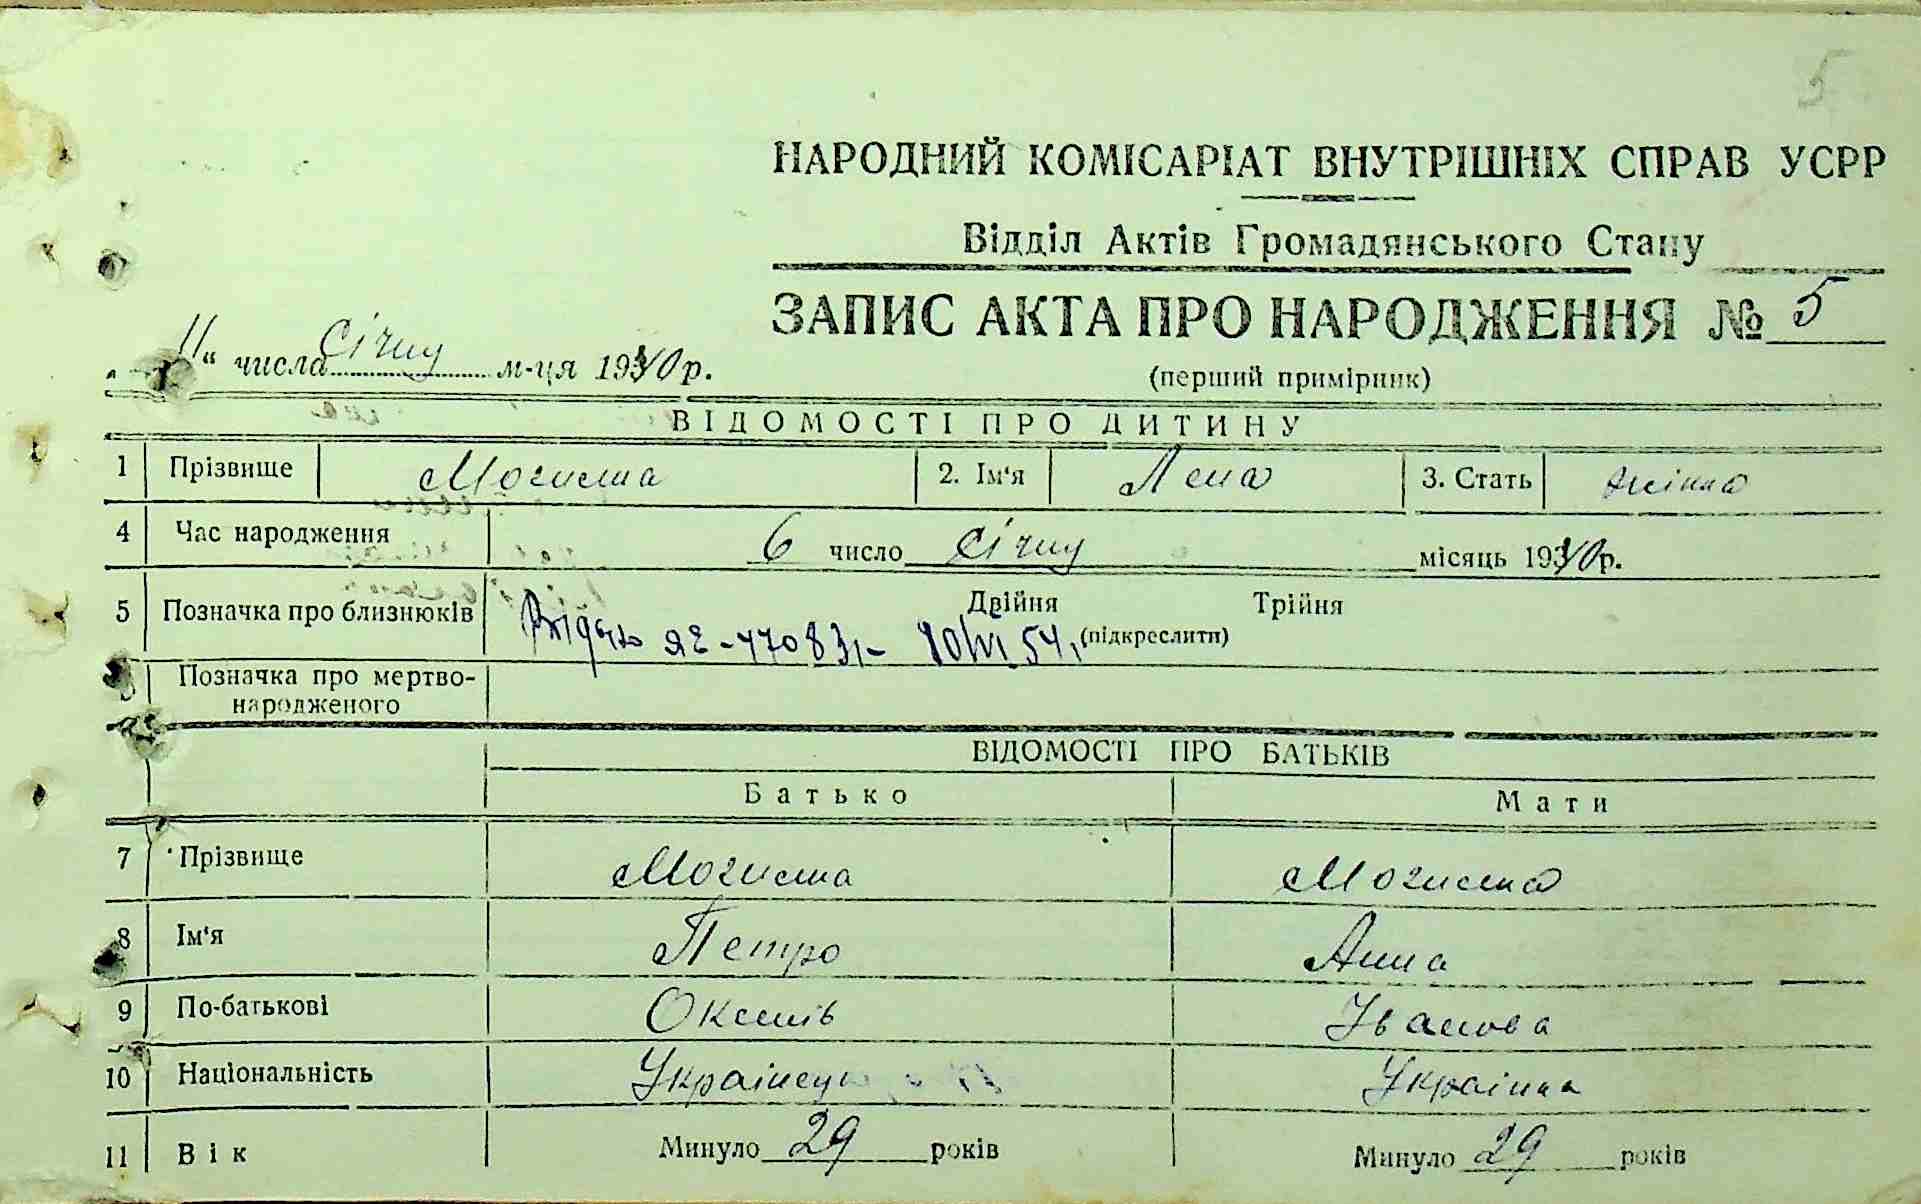 5
НАРОДНИЙ КОМІСАРІАТ ВНУТРІШНІХ СПРАВ УСРР
Відділ Актів Громадянського Стану
ЗАПИС АКТА ПРО НАРОДЖЕННЯ № 5
11 “ числа Січня м-ця 1940 р.
(перший примірник)
ВІДОМОСТІ ПРО ДИТИНУ
1 Прізвище Могилка 2. Ім‘я Лена 3. Стать жінка
4 Час народження 6 число Січня місяць 1940 р.
5 Позначка про близнюків Двійня Трійня
ЯЕ-477083, 10/VI 54, (підкреслити)
Позначка про мертво-
народженого
ВІДОМОСТІ ПРО БАТЬКІВ
Батько Мати
7 Прізвище Могилка Могилка
8 Ім‘я Петро Анна
9 По-батькові Іванова
10 Національність Українець Українка
11 Вік Минуло 29 років Минуло 29 років